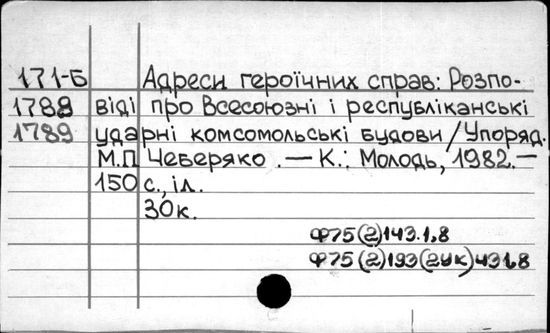 171-Б Адреси героїчних справ: Розпо-
1788 віді про Всесоюзні і республіканські
1789 ударні комсомольські будови / Упоряд.
М.П. Чеберяко. — К.: Молодь, 1982. —
150 с., іл.
30к.
Ф75(2)143.1,8
Ф75(2)193(2Ук)431,8